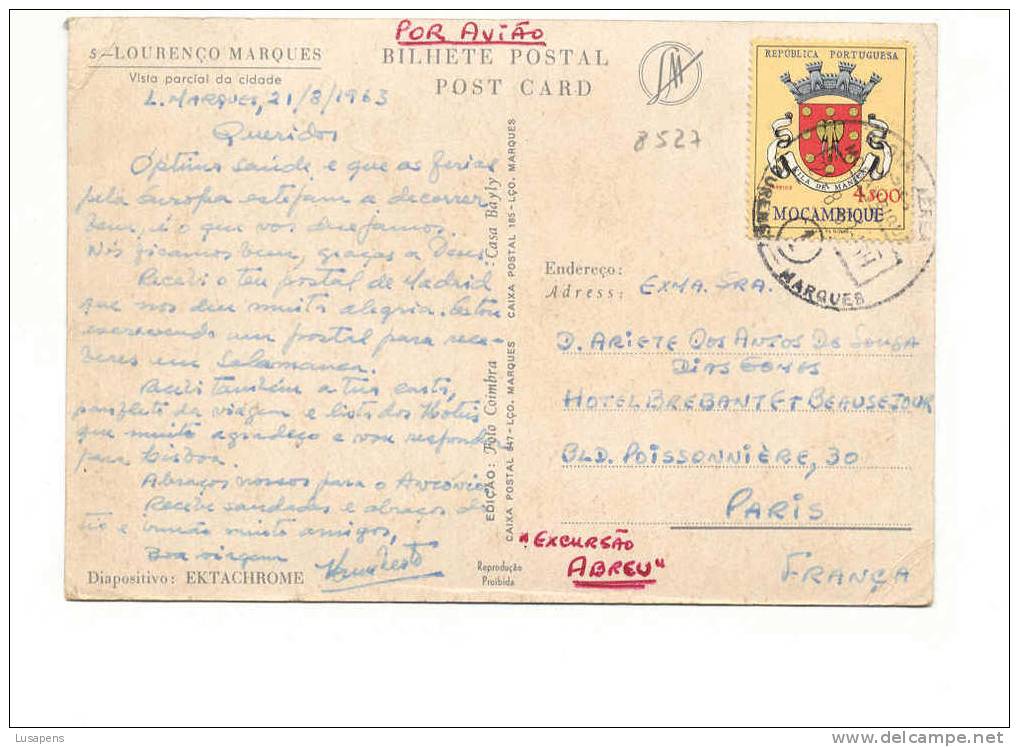 POR AVIÃO
5—LOURENÇO MARQUES
Vista parcial da cidade
BILHETE POSTAL
POST CARD
L. MARQUES, 21/8/1963
Queridos
Óptima saúde e que as férias
pela Europa estejam a decorrer
bem, é o que vos desejamos.
Nós ficamos bem, graças a Deus.
Recebi o teu postal de Madrid
que nos deu muita alegria. Estou
escrevendo um postal para rece-
beres em Salamanca.
Recebi também a tua carta,
panfleto da viagem e lista dos Hotéis
que muito agradeço e vou responder
para Lisboa.
Abraços nossos para o
Recebe saudades e abraços do
tio e irmão muito amigos,
Boa viagem
Humberto
Diapositivo: EKTACHROME
EDIÇÃO: Foto Coimbra : Casa Bayly
CAIXA POSTAL 647 - LÇO. MARQUES CAIXA POSTAL 185 - LÇO. MARQUES
Reprodução
Proibida
8527
REPÚBLICA PORTUGUESA
VILA DE MANICA
4$00
MOÇAMBIQUE
MARQUES
Endereço:
Adress:
EXMA. SRA.
D. ARIETE DOS ANJOS DE SOUSA
DIAS GOMES
HOTEL BREBANT ET BEAUSEJOUR
BLD. POISSONNIÈRE, 30
PARIS
FRANÇA
"EXCURSÃO
ABREU"
Lusapens
www.delcampe.net